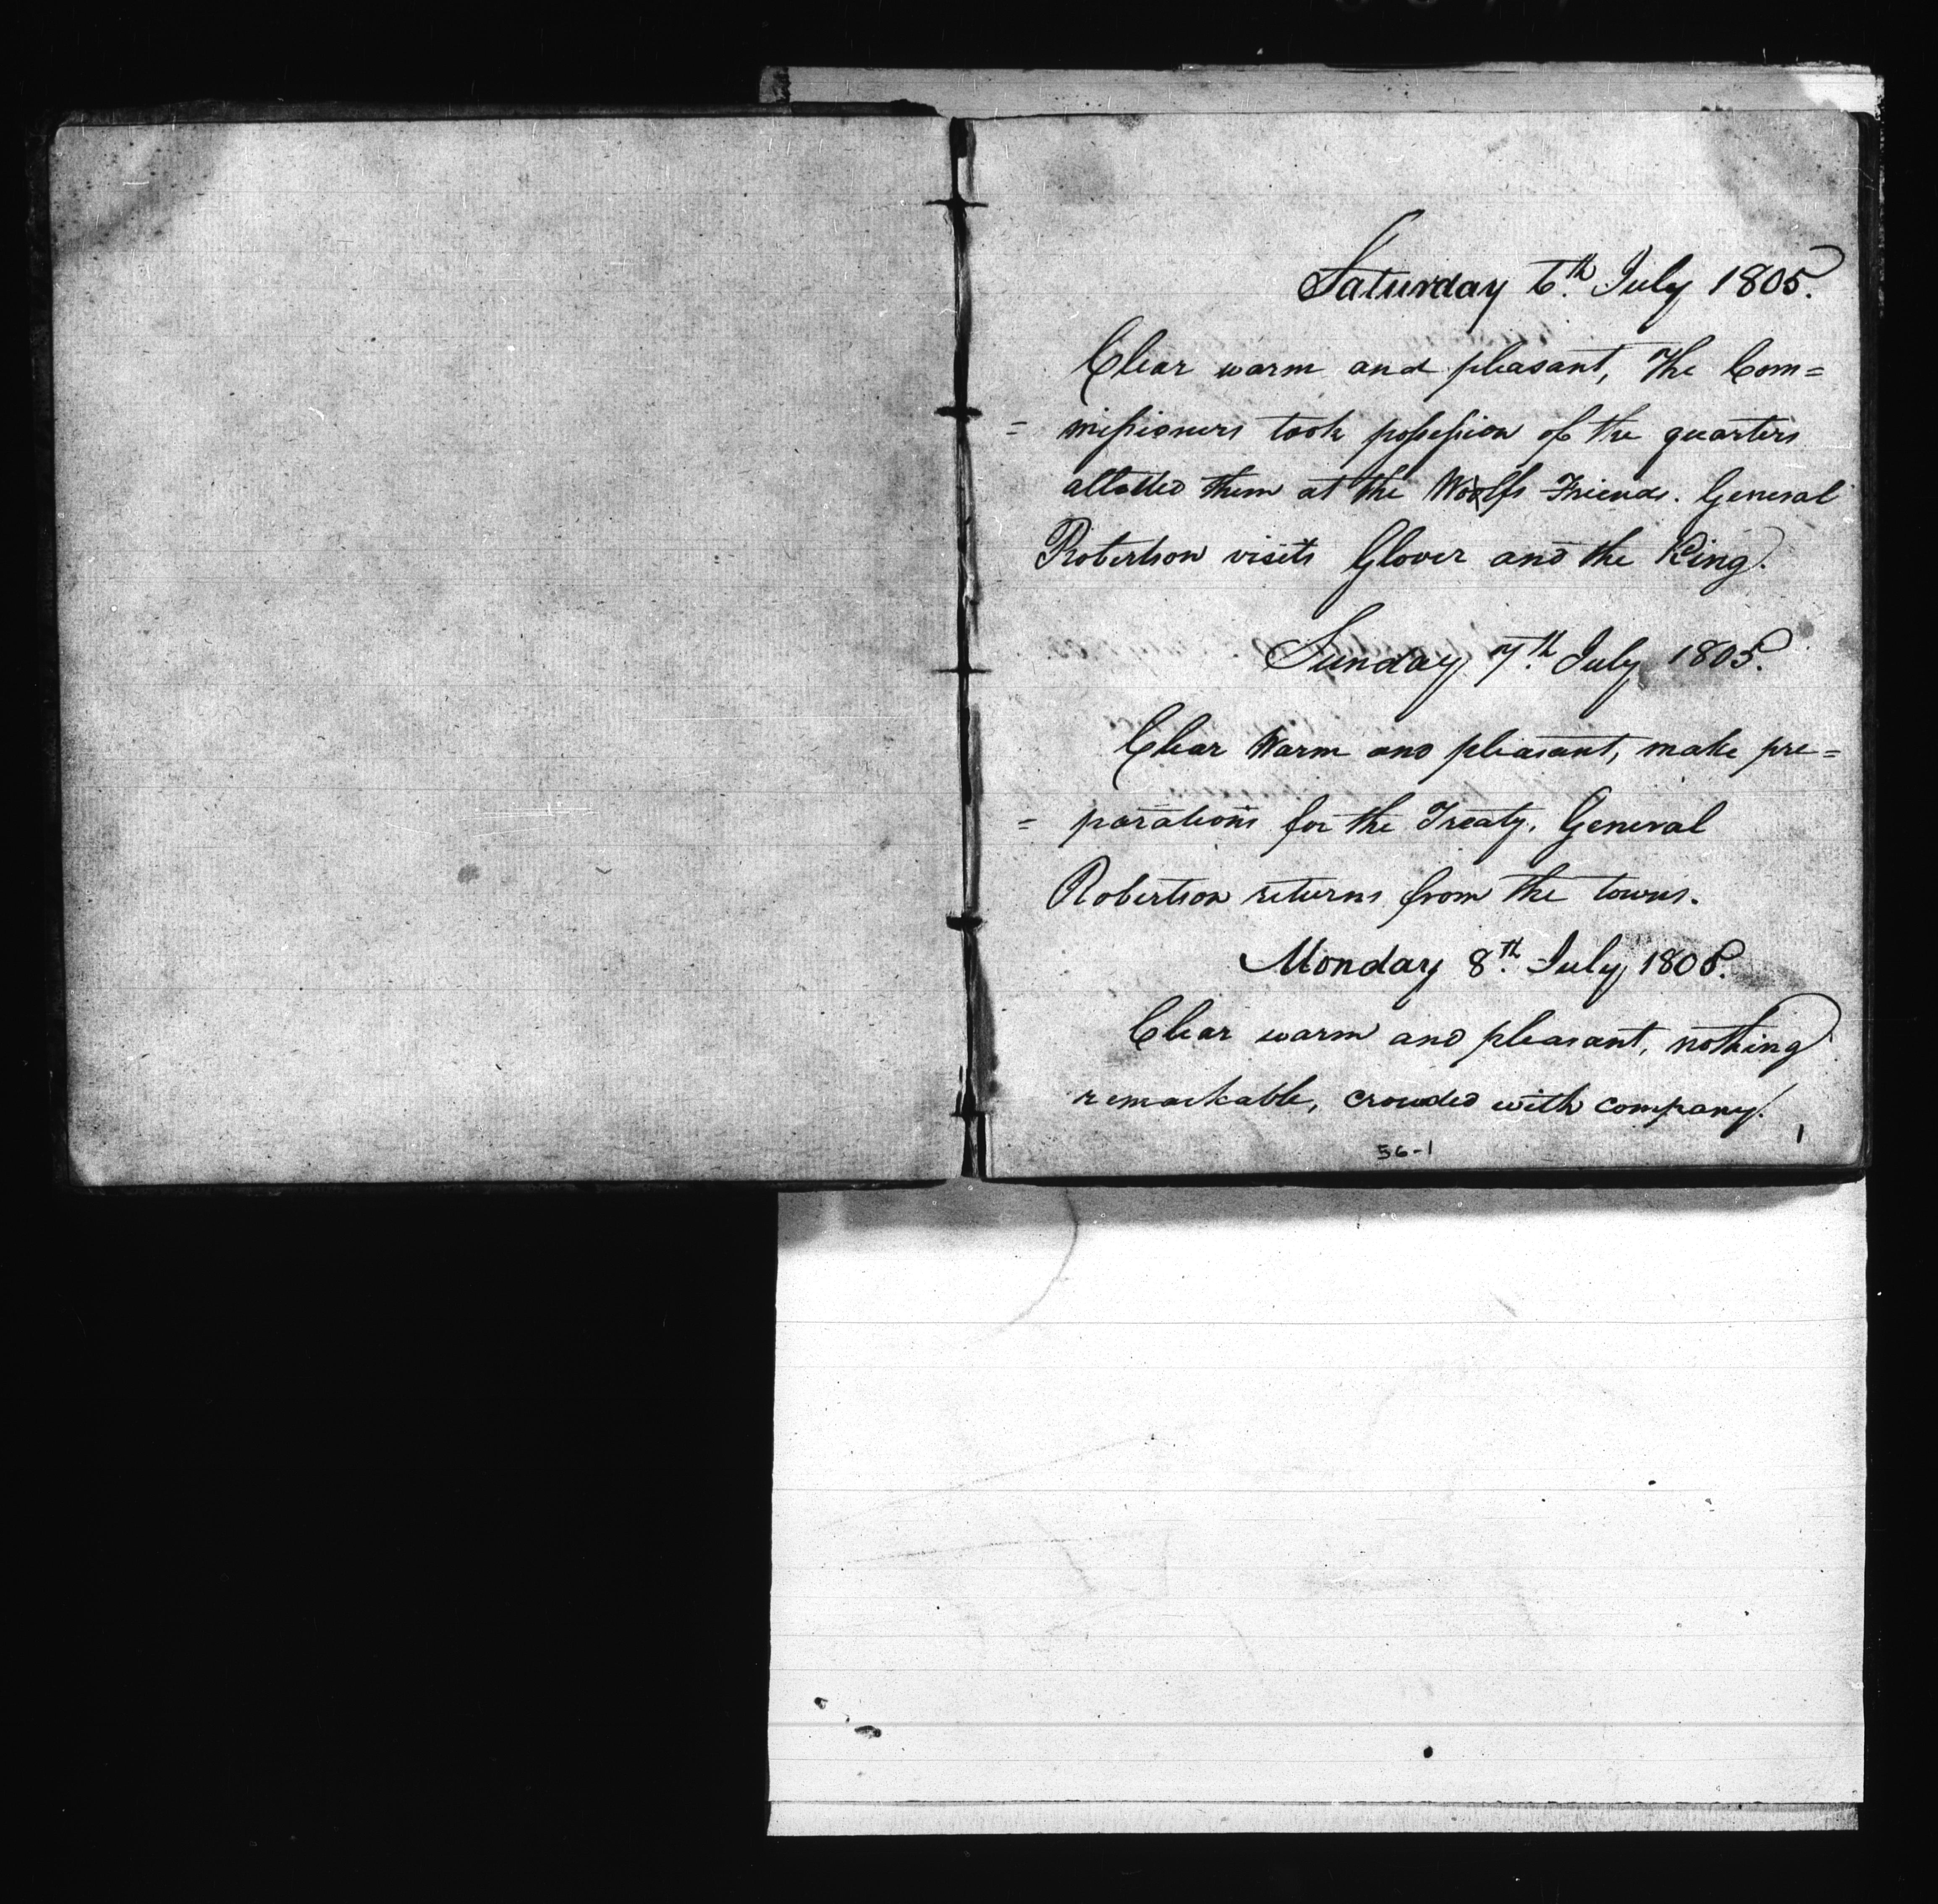 Saturday 6th. July 1805.
Clear warm and pleasant, The Com=
= missioners took possession of the quarters
allotted them at the Woolfs Friends. General
Robertson visits Glover and the King.
Sunday 7th. July 1805.
Clear Warm and pleasant, make pre=
= parations for the Treaty. General
Robertson returns from the towns.
Monday 8th. July 1805.
Clear warm and pleasant, nothing
remarkable, crouded with company.
1
56-1